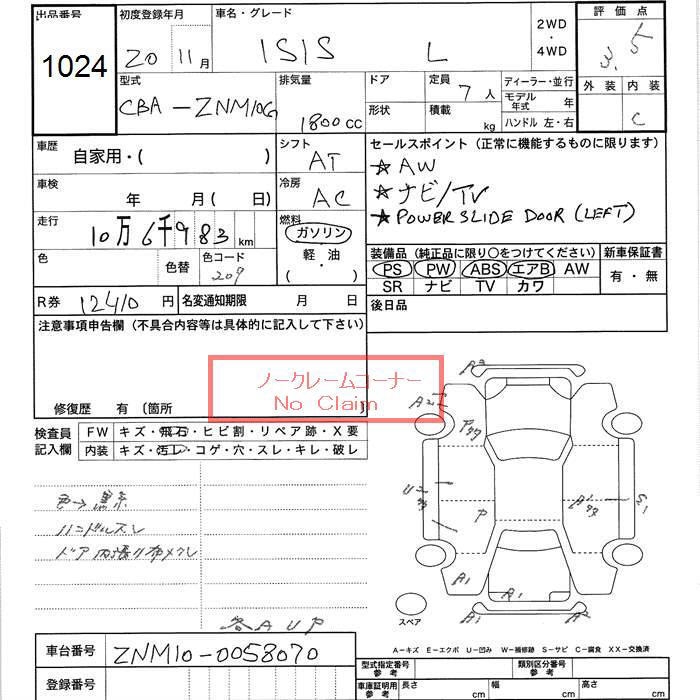 出品番号 1024
初度登録年月 20 11月
車名・グレード ISIS L
2WD・4WD
評価点 3.5
型式 CBA-ZNM10G
排気量 1800cc
ドア
形状
定員 7人
積載 kg
ディーラー・並行
モデル年式 年
ハンドル 左・右
外装 内装 C
車歴 自家用・( )
シフト AT
セールスポイント(正常に機能するものに限ります)
★AW
★ナビ/TV
★POWER SLIDE DOOR (LEFT)
車検 年 月( 日)
冷房 AC
走行 10万6千983km
燃料 ガソリン
軽・油
( )
色 色替 色コード 209
装備品(純正品に限り○をつけてください) 新車保証書
PS PW ABS エアB AW 有・無
SR ナビ TV カワ
R券 12410円 名変通知期限 月 日
後日品
注意事項申告欄(不具合内容等は具体的に記入して下さい)
ノークレームコーナー
No Claim
修復歴 有〔箇所
検査員記入欄 FW キズ・飛石・ヒビ割・リペア跡・X要
内装 キズ・汚レ・コゲ・穴・スレ・キレ・破レ
色→黒系
ハンドルスレ
ドア内張リ布メクレ
各AUP
A3
A2
P
U
P
A1
S1
A1
A1
A1
A2
スペア
A-キズ E-エクボ U-凹み W-補修跡 S-サビ C-腐食 XX-交換済
車台番号 ZNM10-0058070
登録番号
型式指定番号 参考 類別区分番号 参考
車庫証明用 参考 長さ cm 幅 cm 高さ cm